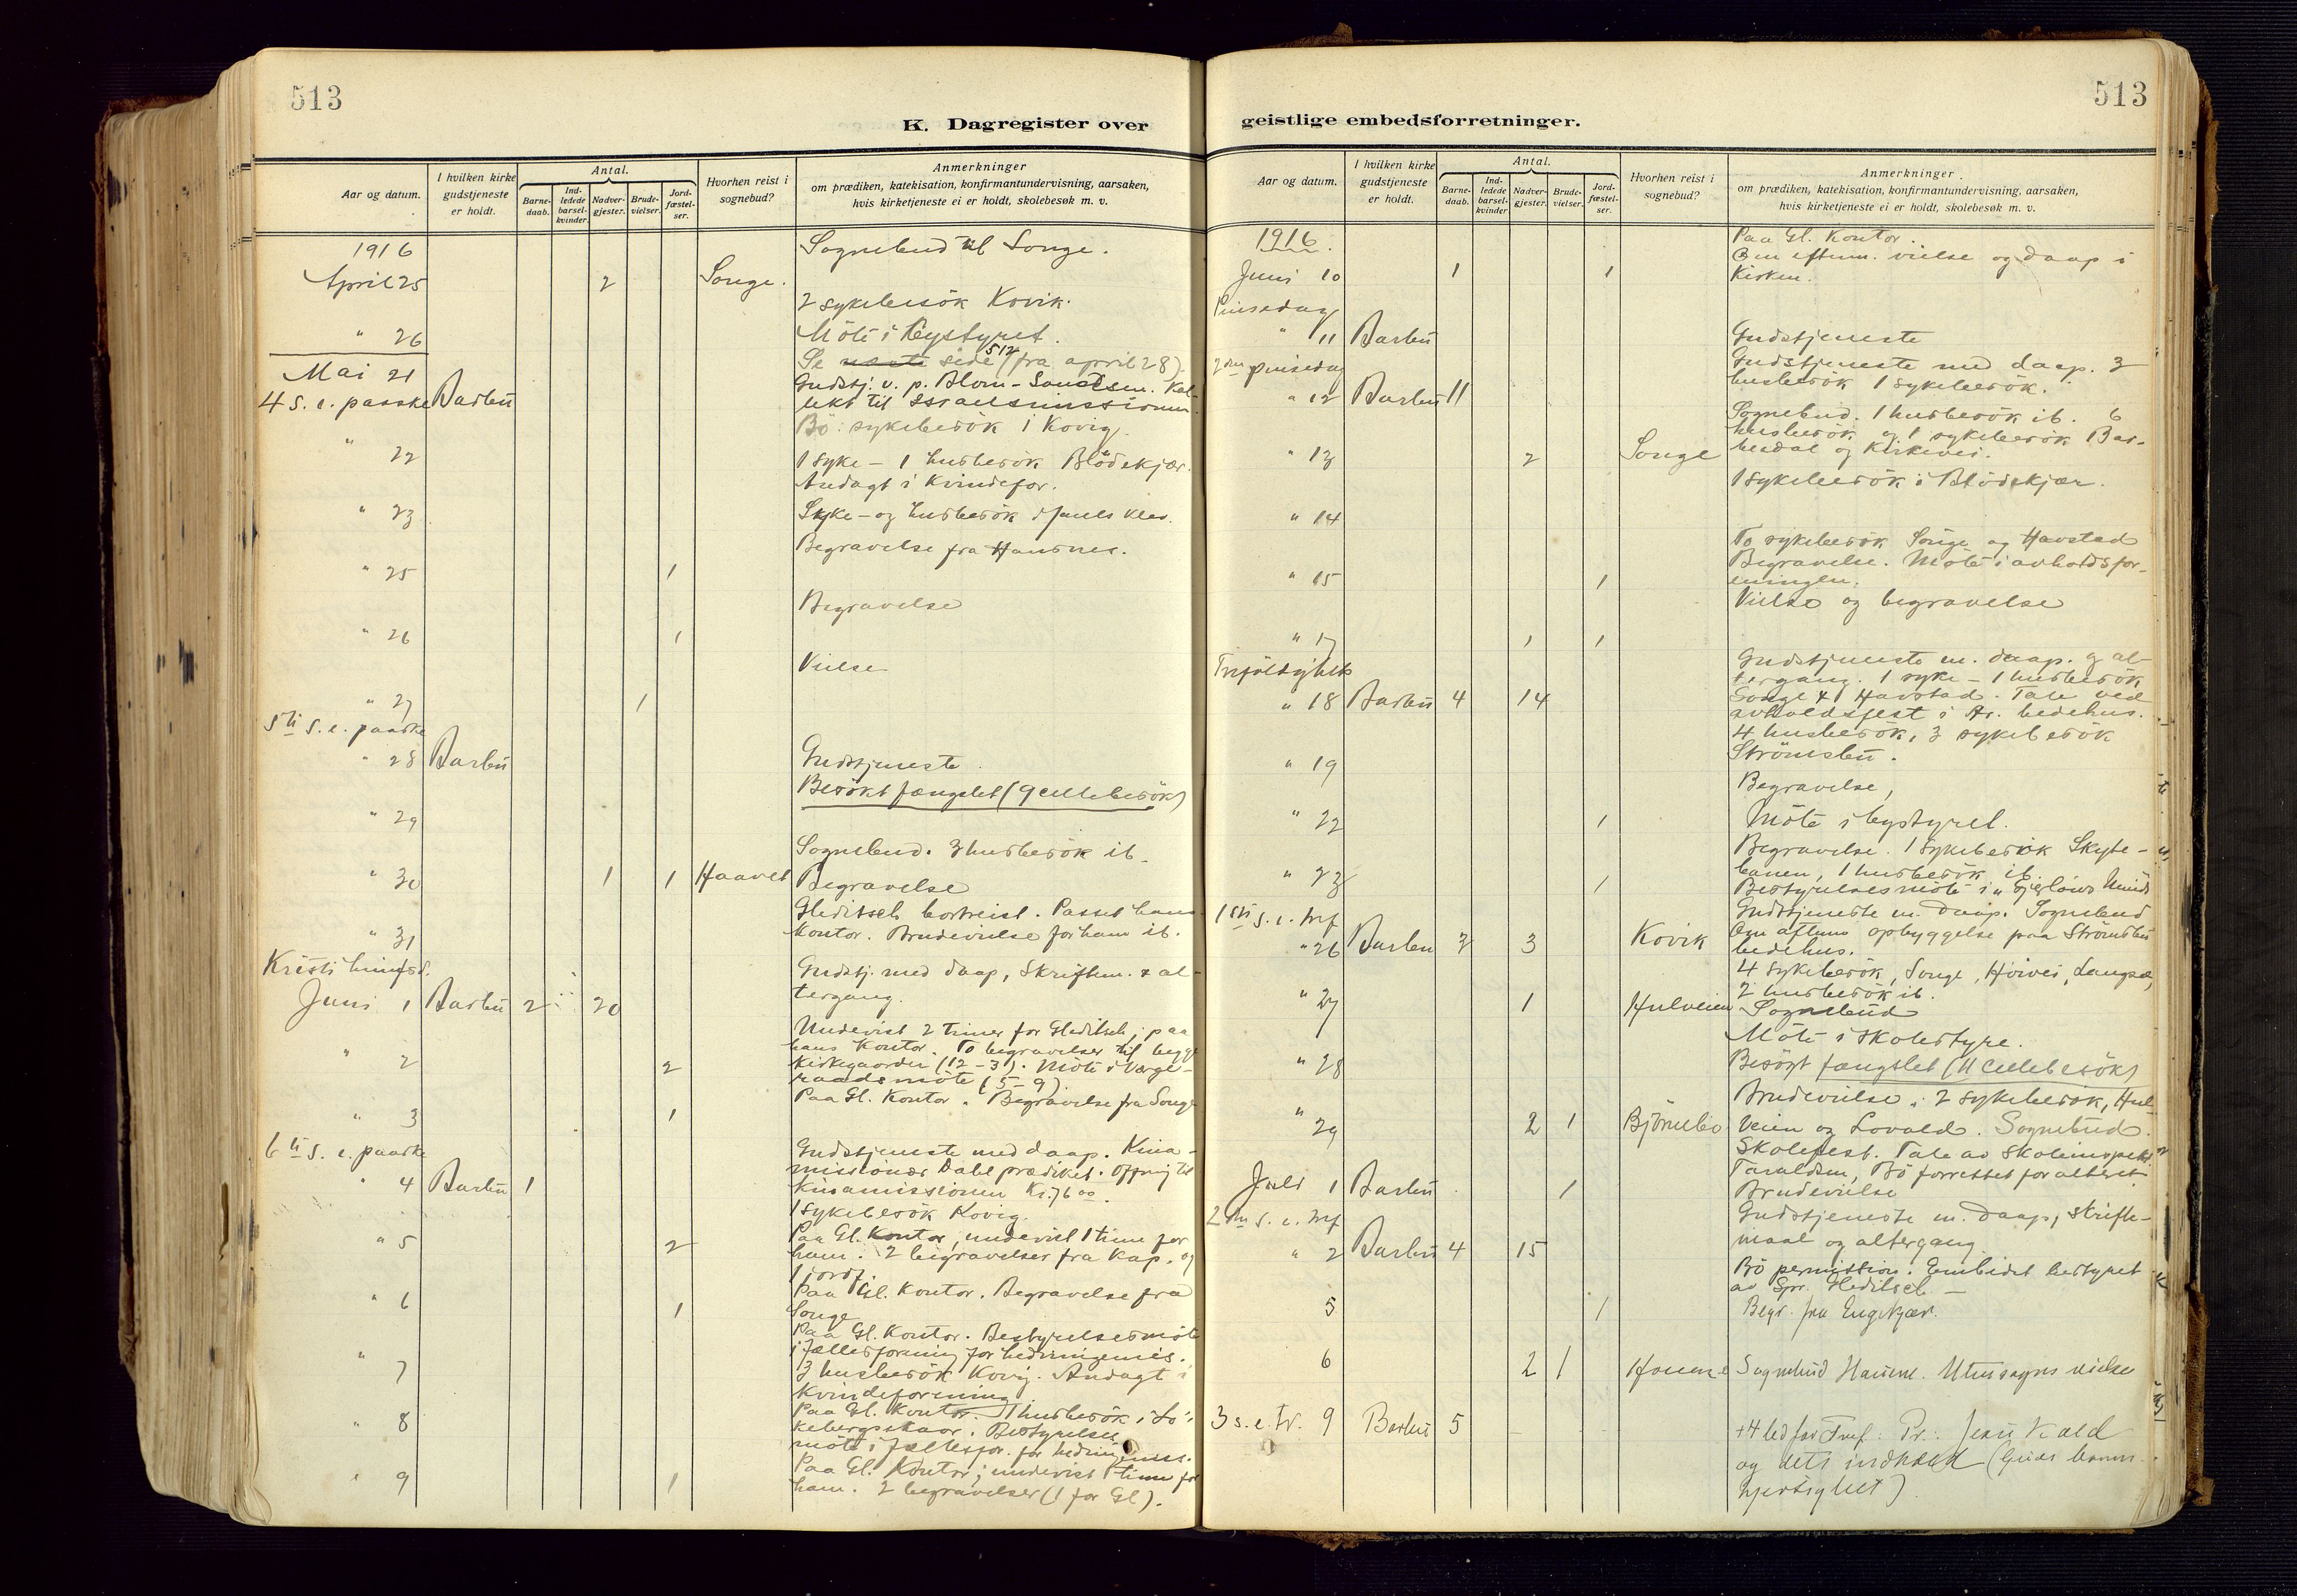 513
K. Dagregister over
Aar og datum.
I hvilken kirke gudstjeneste er holdt.
Antal.
Barne-daab.
Ind-ledede barsel-kvinder
Nadver-gjester.
Brude-vielser.
Jord-fæstel-ser.
Hvorhen reist i sognebud?
Anmerkninger
om prædiken, katekisation, konfirmantundervisning, aarsaken,
hvis kirketjeneste ei er holdt, skolebesøk m. v.
1916
Sognebud til Songe.
April 25 2 Songe.
2 sykebesök Kovik.
" 26 Möte i bystyret.
Se næste side 512 (fra april 28).
Mai 21
Gudstj. v. p. Blom-Sandsen. Kol-
4 S. e. paaske Barbu
lekt til Israelsmissionen.
Bö: sykebesök i Kovig.
" 22
1 syke- 1 husbesök Blödekjær.
Andagt i Kvindefor.
" 23 Syke- og husbesök i Jauls klev.
Begravelse fra Hausnes.
" 25 1
Begravelse
" 26 1
Vielse
" 27 1
5te S. e. paaske
" 28 Barbu Gudstjeneste.
Besökt fængslet (9 cellebesök)
" 29
Sognebud. 3 husbesök ib.
" 30 1 1 Haavet Begravelse
Gleditsch bortreist. Passet hans
" 31 Kontor. Brudevielse for ham ib.
Kristi himfd.
Gudstj. med daap, Skriftem. & al-
Juni 1 Barbu 2 20 tergang.
Undervist 2 timer for Gleditsch; paa
hans Kontor. To begravelser til begge
" 2 2 Kirkegaarder (12-3). Möte i Verge-
raadsmöte (5-9).
Paa Gl. Kontor. Begravelse fra Songe
" 3 1
6te S. e. paaske
Gudstjeneste med daap. Kina-
missionær Dahl prædiket. Offring til
" 4 Barbu 1 Kinamissionen Kr. 76 00.
1 sykebesök Kovig.
" 5 2 Paa Gl. Kontor, undervist 1 time for
ham. 2 begravelser fra Kap. og
1 jordf.
" 6 1 Paa Gl. Kontor. Begravelse fra
Songe
Paa Gl. Kontor. Bestyrelsesmöte
" 7 i fællesforening for hedningemis.
3 husbesök Kovig. Andagt i
Kvindeforening.
" 8 Paa Gl. Kontor. 1 husbesök i Lö-
kebergskaar. Bestyrelses
möte i Fællesfor. for hedningemis.
" 9 1 Paa Gl. Kontor; undervist 1 time for
ham. 2 begravelser (1 for Gl).
geistlige embedsforretninger.
513
Aar og datum.
I hvilken kirke gudstjeneste er holdt.
Antal.
Barne-daab.
Ind-ledede barsel-kvinder
Nadver-gjester.
Brude-vielser.
Jord-fæstel-ser.
Hvorhen reist i sognebud?
Anmerkninger
om prædiken, katekisation, konfirmantundervisning, aarsaken,
hvis kirketjeneste ei er holdt, skolebesøk m. v.
1916.
Paa Gl. Kontor.
Om efterm. vielse og daap i
Juni 10 1 1 Kirken.
Pinsedag
" 11 Barbu Gudstjeneste
2den pinsedag
Gudstjeneste med daap. 3
" 12 Barbu 11 husbesök 1 sykebesök.
Sognebud. 1 husbesök ib. 6
husbesök og 1 sykebesök Bar-
" 13 2 Songe budal og Kirkevei.
1 sykebesök i Blödekjær.
" 14
To sykebesök Songe og Havstad
Begravelse. Möte i avholdsfor-
" 15 1 eningen.
Vielse og begravelse
" 17 1 1
Trefoldighets
Gudstjeneste m. daap. og al-
tergang. 1 syke- 1 husbesök
" 18 Barbu 4 14 Songe & 1 Havstad. Tale ved
avholdsfest i Ar. bedehus.
4 husbesök, 3 sykebesök
" 19 Strömsbu.
Begravelse,
" 22 1 Möte i bystyret.
Begravelse. 1 sykebesök Skyte-
" 23 1 banen, 1 husbesök ib.
Bestyrelsesmöte i "Gjerlöws Minde
1ste S. e. tref
Gudstjeneste m. daap. Sognebud
" 26 Barbu 3 3 Kovik Om aftens opbyggelse paa Strömsbu
bedehus.
4 sykebesök, Songe, Höivei, Langsæ,
2 husbesök ib.
" 27 1 Hulveien Sognebud
Möte i skolestyre.
" 28 Besögt fængslet (11 cellebesök)
Brudevielse. 2 sykebesök, Hul-
" 29 2 1 Björnebo veien og Lovold. Sognebud.
Skolefest. Tale av skoleinspekt.
Taraldsen, Bö forrettet for alteret
Juli 1 Barbu 1 Brudevielse
2den S. e. tref
Gudstjeneste m. daap, skrifte-
" 2 Barbu 4 15 maal og altergang
Bö permission. Embedet bestyret
av Spr. Gleditsch.
5 1 Begr. fra Engekjær.
6 2 1 Houene Sognebud Hauene. Utensogns vielse
3 s. e. tr. 9 Barbu 5
Jesu Kald
og dets indhold (Guds barm-
hjertighet).